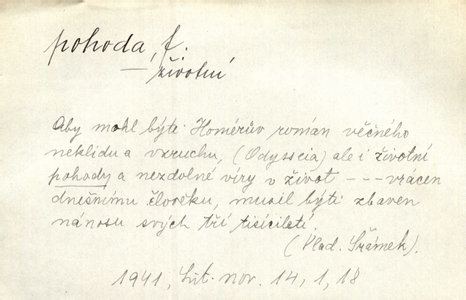 pohoda, f.
— životní
Aby mohl býti Homérův román věčného
neklidu a vzruchu, (Odysseia) ale i životní
pohody a nezdolné víry v život - - - vrácen
dnešnímu člověku, musil býti zbaven
nánosu svých tří tisíciletí.
(Vlad. Šrámek).
1941, Lit. nov. 14, 1, 18